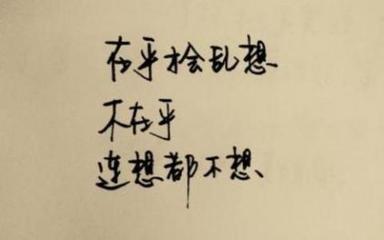 在乎才会乱想
不在乎
连想都不想、